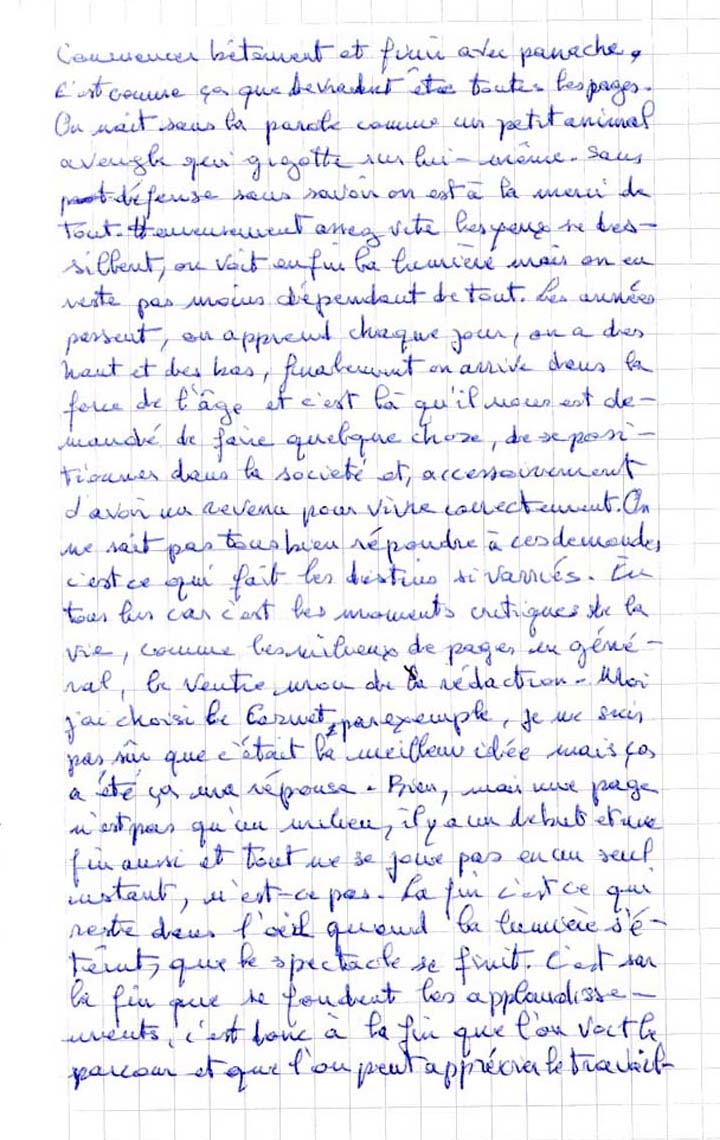 Commencer bêtement et finir avec panache,
c'est comme ça que devraient être toutes les pages.
On nait sans la parole comme un petit animal
aveugle qui gigotte sur lui-même. Sans
défense sans savoir on est à la merci de
tout. Heureusement assez vite les yeux se des-
sillent, on voit enfin la lumière mais on en
reste pas moins dépendant de tout. Les années
passent, on apprend chaque jour, on a des
haut et des bas, finalement on arrive dans la
force de l'âge et c'est là qu'il nous est de-
mandé de faire quelque chose, de se posi-
tionner dans la societé et, accessoirement
d'avoir un revenu pour vivre correctement. On
ne sait pas tous bien répondre à ces demandes,
c'est ce qui fait les destins si varriés. En
tous les cas c'est les moments critiques de la
vie, comme les milieux de pages en géné-
ral, le ventre mou de la rédaction. Moi
j'ai choisi le Carnet, par exemple, je ne suis
pas sûr que c'était la meilleur idée mais ça
a été ça ma réponse. Bien, mais une page
n'est pas qu'un milieu, il y a un debut et une
fin aussi et tout ne se joue pas en un seul
instant, n'est-ce pas. La fin c'est ce qui
reste dans l'oeil quand la lumière s'é-
teint, que le spectacle se finit. C'est sur
la fin que se fondent les applaudisse-
ments, c'est donc à la fin que l'on voit le
parcour et que l'on peut apprécier le travail-